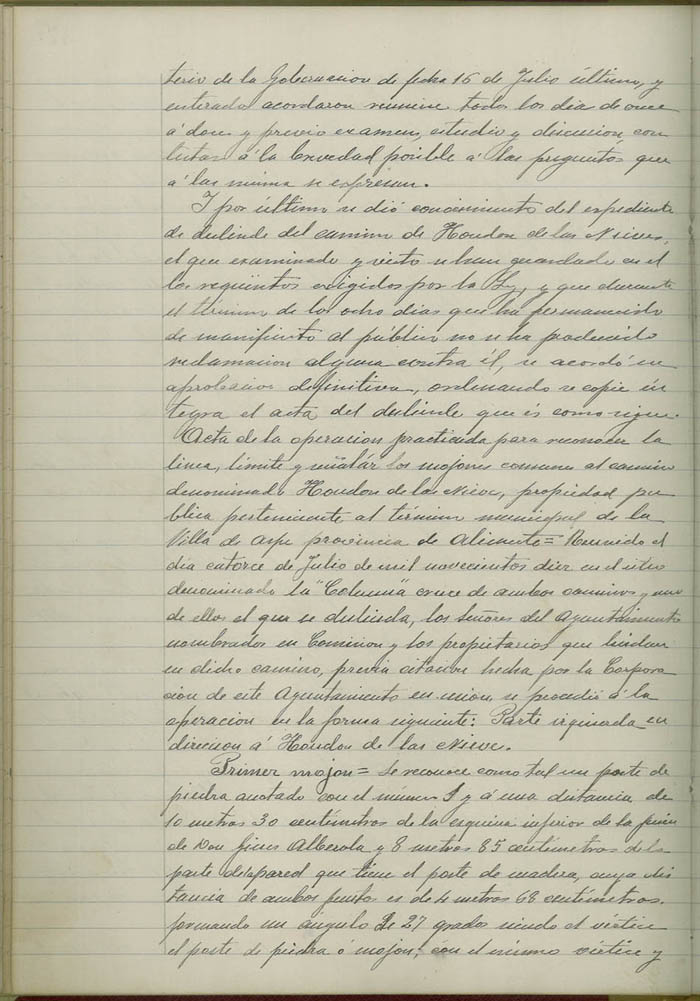 terio de la Gobernacion de fecha 16 de Julio último, y
enterados acordaron reunirse todos los dias de once
á doce y previo examen, estudio y discusion con
testar á la brevedad posible á las preguntas que
á las misma se expresan.
Y por último se dió conocimiento del expediente
de deslinde del camino de Hondon de las Nieves,
el que examinado y visto se han guardado en él
los requisitos exigidos por la Ley, y que durante
el término de los ocho dias que ha permanecido
de manifiesto al público no se ha producido
reclamacion alguna contra él, se acordó su
aprobacion definitiva, ordenando se copie in
tegra el acta del deslinde que és como sigue.
Acta de la operacion practicada para reconocer la
linea, limite y señalár los mojones comunes al camino
denominado Hondon de las Nieve, propiedad pu
blica perteneciente al término municipal de la
Villa de Aspe provincia de Alicante = Reunido el
dia catorce de Julio de mil novecientos diez en el sitio
denominado la "Columna" cruce de ambos caminos y uno
de ellos el que se deslinda, los Señores del Ayuntamiento
nombrados en Comision y los propietarios que lindan
en dicho camino, previa citacion hecha por la Corpora
cion de este Ayuntamiento en union, se procedió á la
operacion en la forma siguiente: Parte izquierda en
direccion á Hondon de las Nieve.
Primer mojon = Se reconoce como tal un poste de
piedra anotado con el número 1 y á una distancia de
10 metros 30 centimetros de la esquina inferior de la
de Don Gines Alberola y 8 metros 85 centimetros de la
parte de la pared que tiene el poste de madera, cuya dis
tancia de ambos puntos es de 4 metros 68 centímetros.
formando un ángulo de 27 grados siendo el vértice
el poste de piedra ó mojon; con el mismo vértice y